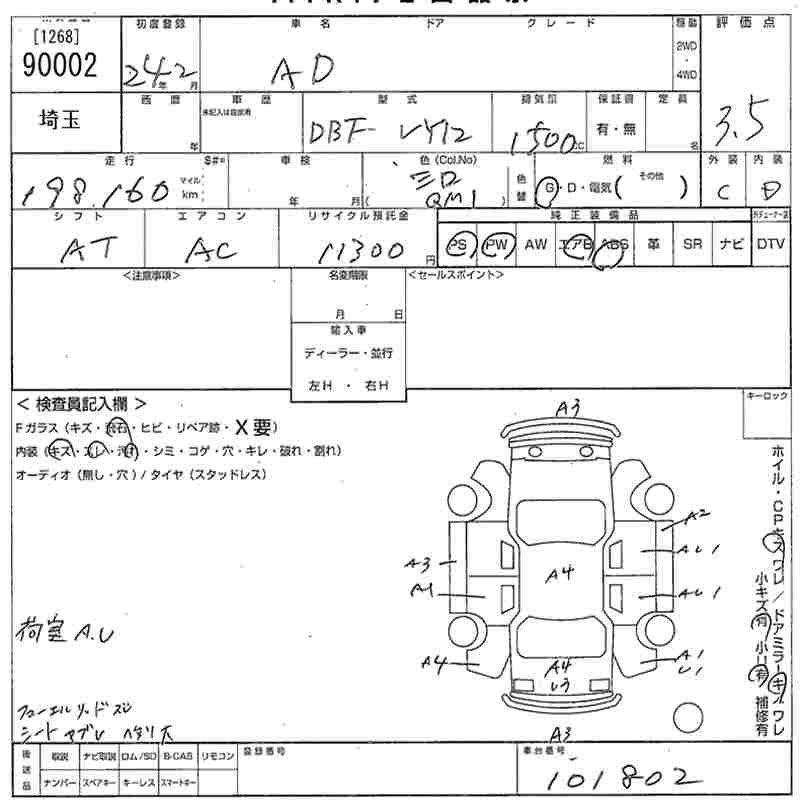 [1268]
90002
初度登録 車名 ドア グレード 駆動 評価点
24年2月 AD 2WD 4WD
3.5
埼玉
西暦 車歴 型式 排気量 保証書 定員
未記入は自家用
年 DBF-VY12 1500cc 有・無 名
走行 S#= 車検 色(Col.No) 燃料 外装 内装
198,160 マイル km 年 月 シロ QM1 色替 G・D・電気( その他 ) C D
シフト エアコン リサイクル預託金 純正装備品
AT AC 11300円 PS PW AW エアB ABS 革 SR ナビ DTV
<注意事項> 名変期限 <セールスポイント>
月 日
輸入車
ディーラー・並行
左H ・ 右H
<検査員記入欄> キーロック
Fガラス(キズ・飛石・ヒビ・リペア跡・X要)
内装(キズ・スレ・汚れ・シミ・コゲ・穴・キレ・破れ・割れ)
オーディオ(無し・穴)/タイヤ(スタッドレス)
A3
A2
A3 AU1
A4
A1 AU1
A4 A4 A1
U3 U1
A3
ホイル・CPキズワレ/ドアミラーキズワレ
小キズ有 小U有 補修有
荷室 A.U
フューエルリッドズレ
シート ヤブレ ヘタリ大
後送品 取説 ナビ取説 ロム/SD B-CAS リモコン 登録番号 車台番号
ナンバー スペアキー キーレス スマートキー 101802